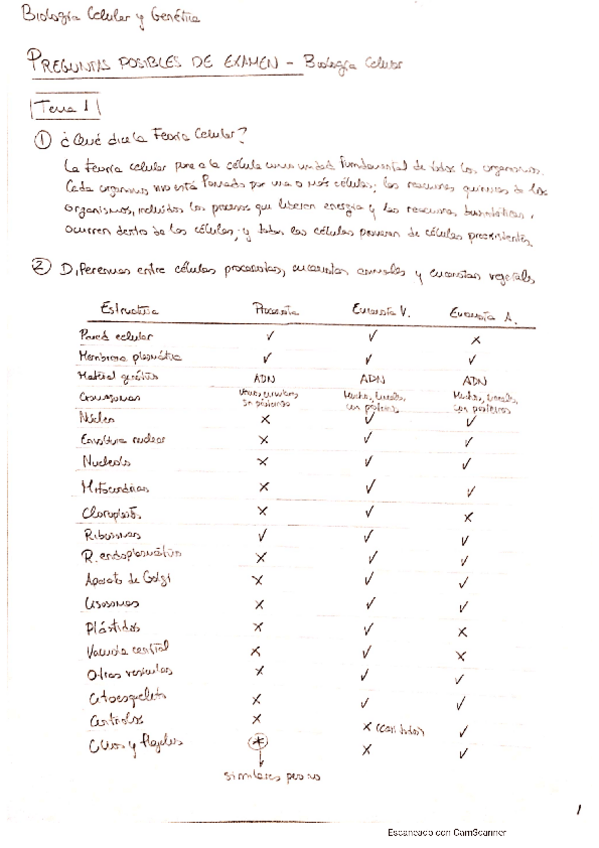 Biología Celular y Genética
PREGUNTAS POSIBLES DE EXAMEN - Biología Celular
Tema 1
① ¿Qué dice la Teoría Celular?
La teoría celular pone a la célula como unidad fundamental de todos los organismos.
Cada organismo vivo está formado por una o más células; las reacciones químicas de los
organismos, incluidos los procesos que liberan energía y las reacciones biosintéticas,
ocurren dentro de las células; y todas las células provienen de células preexistentes.
② Diferencias entre células procariotas, eucariotas animales y eucariotas vegetales
Estructura Procariota Eucariota V. Eucariota A.
Pared celular ✓ ✓ ✗
Membrana plasmática ✓ ✓ ✓
Material genético ADN ADN ADN
Cromosomas circulares, sin proteínas Muchos, lineales, con proteínas Muchos, lineales, con proteínas
Núcleo ✗ ✓ ✓
Envoltura nuclear ✗ ✓ ✓
Nucleolo ✗ ✓ ✓
Mitocondrias ✗ ✓ ✓
Cloroplast. ✗ ✓ ✗
Ribosomas ✓ ✓ ✓
R. endoplasmático ✗ ✓ ✓
Aparato de Golgi ✗ ✓ ✓
Lisosomas ✗ ✓ ✓
Plástidos ✗ ✓ ✗
Vacuola central ✗ ✓ ✗
Otras vesículas ✗ ✓ ✓
Citoesqueleto ✗ ✓ ✓
Centriolos ✗ ✗ (casi todos) ✓
Cilios y flagelos ✗ ✗ ✓
similares pero no
1
Escaneado con CamScanner